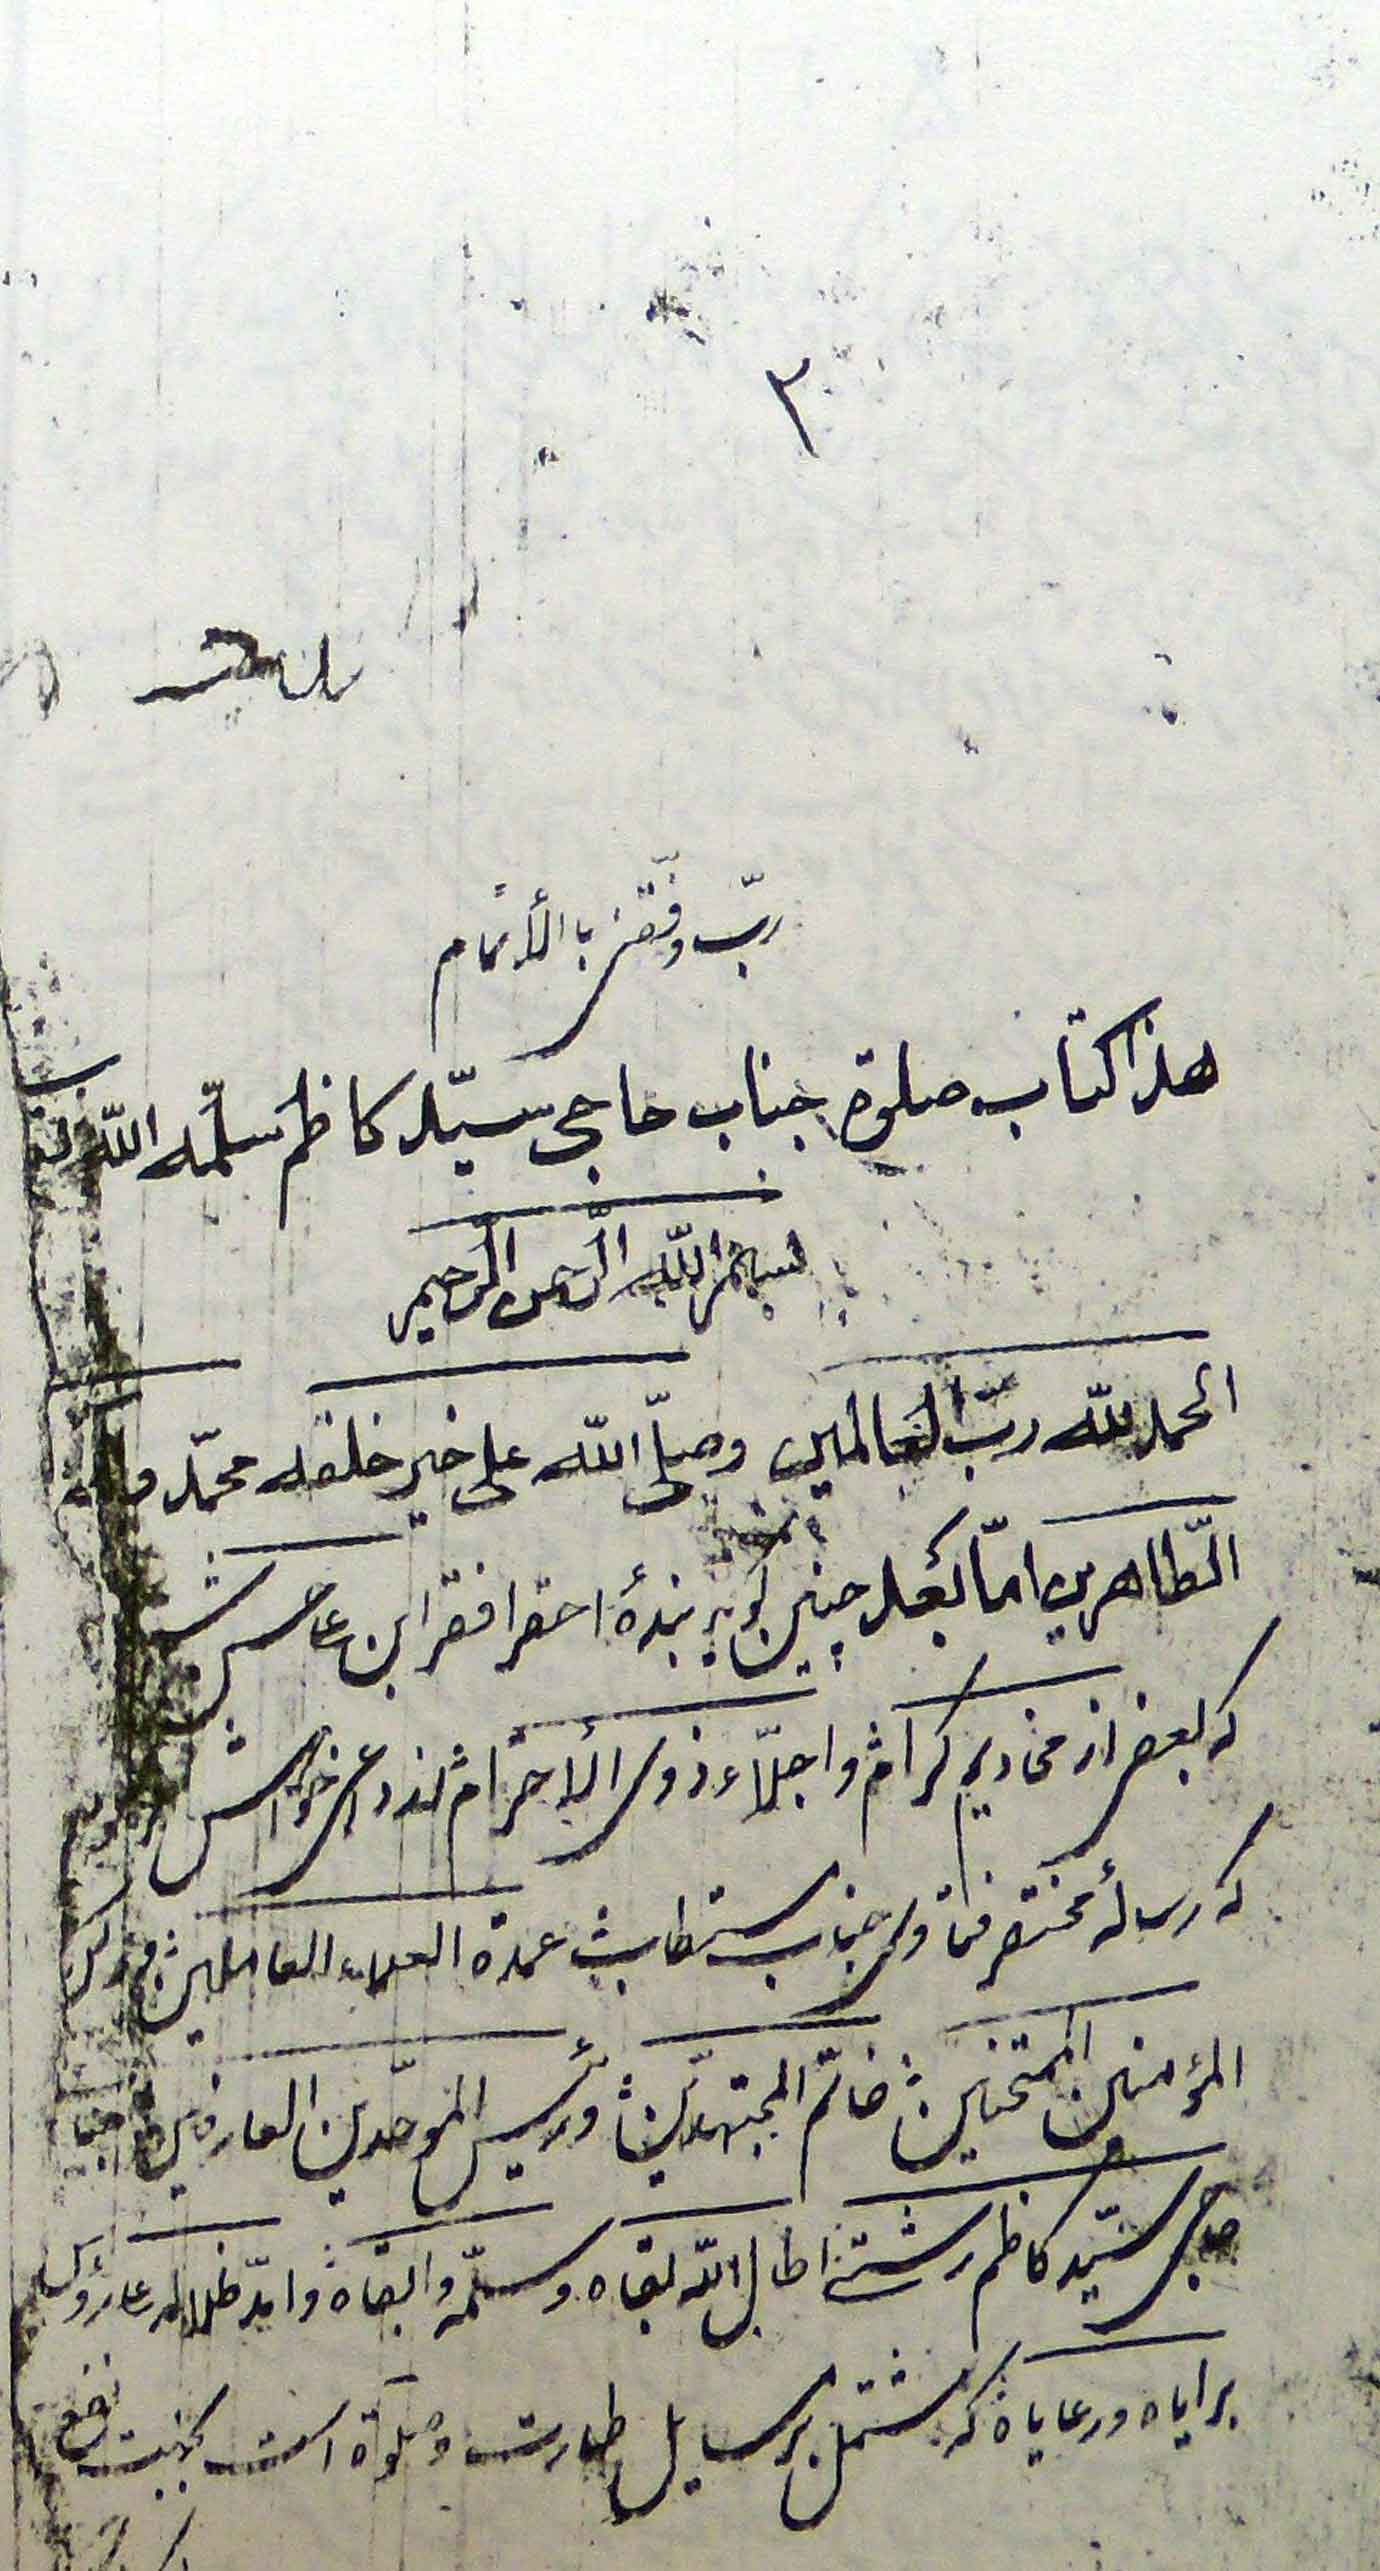 ٣
ربّ وفّقنی بالأتمام
هذا کتاب صلوة جناب حاجی سیّد کاظم سلّمه الله
بسم الله الرّحمن الرّحیم
الحمد لله ربّ العالمین وصلّی الله علی خیر خلقه محمّد وآله
الطّاهرین امّا بعد چنین کوید بندۀ احقر افقر ابن عاشر
که بعضی از مخادیم کرام و اجلّاء ذوی الأحترام از داعی خواهش
که رسالۀ مختصر فتاوی جناب مستطاب عمدة العلماء العاملین
المؤمنین الممتحنین خاتم المجتهدین ورئیس الموحّدین العارفین جناب
حاجی سیّد کاظم رشتی اطال الله بقاه وسلّمه وابقاه وامدّ ظلاله علی رؤس
برایاه ورعایاه که مشتمل بر مسایل طهارت وصلوة است بجهت نفع